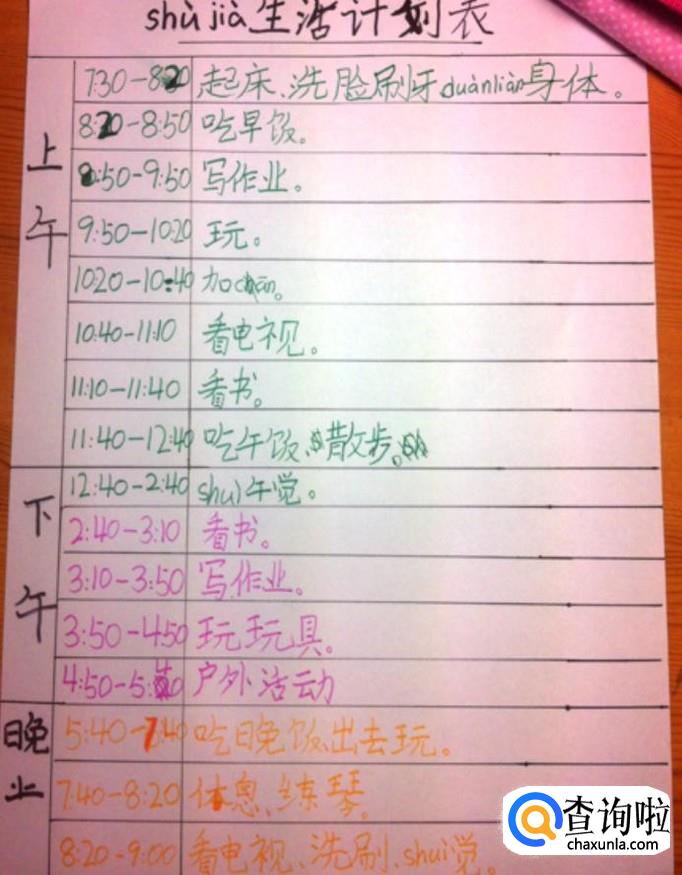 shù jià生活计划表
上午
7:30-8:20 起床、洗脸刷牙duànliàn身体。
8:20-8:50 吃早饭。
8:50-9:50 写作业。
9:50-10:20 玩。
10:20-10:40 加cān。
10:40-11:10 看电视。
11:10-11:40 看书。
11:40-12:40 吃午饭、散步。
下午
12:40-2:40 shuì午觉。
2:40-3:10 看书。
3:10-3:50 写作业。
3:50-4:50 玩玩具。
4:50- 户外活动
晚上
5:40-7:40 吃晚饭、出去玩。
7:40-8:20 休息、练琴。
8:20-9:00 看电视、洗刷、shui觉。
查询啦
chaxunla.com